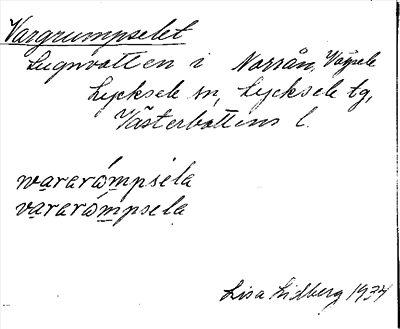 Vargrumpselet
Lugnvatten i Norrån, Vägsele
Lycksele sn, Lycksele tg,
Västerbottens l.
wararómpsela
vararómpsela
Lisa Lidberg 1934